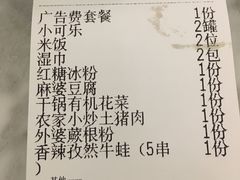 广告费套餐 1份
小可乐 2罐
米饭 2位
湿巾 2包
红糖冰粉 1份
麻婆豆腐 1份
干锅有机花菜 1份
农家小炒土猪肉 1份
外婆蕨根粉 1份
香辣孜然牛蛙（5串 1份
）